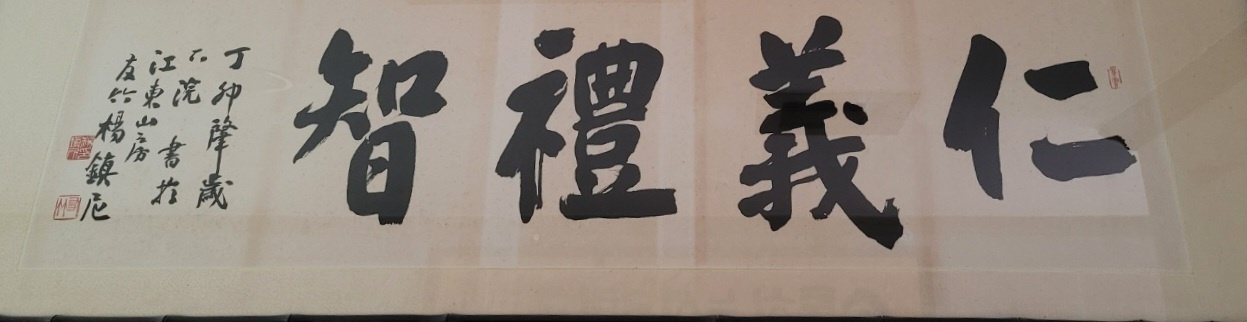 仁義禮智
丁卯隆歲
不浣 書於
江東山房
友竹 楊鎭